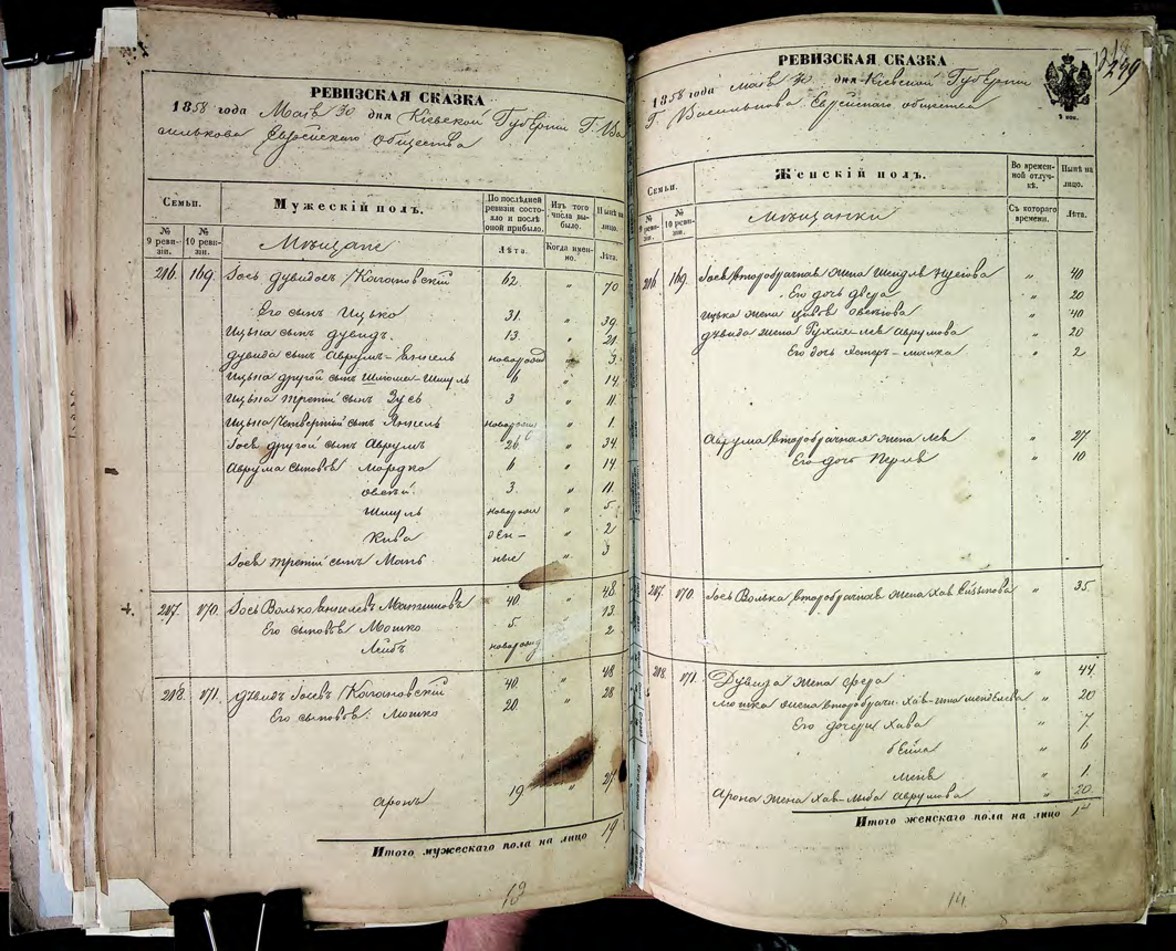 РЕВИЗСКАЯ СКАЗКА
1858 года Мая 30 дня Кіевской Губерніи Г. Ва
силькова Еврейскаго Общества
Семьи.
Мужескій полъ.
По послѣдней ревизіи состояло и послѣ оной прибыло.
Изъ того числа выбыло.
Нынѣ на лицо.
№ 9 ревизіи.
№ 10 ревизіи.
Мѣщане
Лѣта.
Когда именно.
Лѣта.
216. 169. Іось Дувидовъ Кагановскій 62. " 70
Его сынъ Ицько 31. " 39
Ицька сынъ Дувидъ 13. " 21
Дувида сынъ Аврумъ- новорожд " 3
Ицька другой сынъ Шлюма-Шмуль 6 " 14
Ицька третій сынъ Зусь 3 " 11
Ицька Четвертый сынъ Янкель новорожд " 1.
Іося другой сынъ Аврумъ 26. " 34
Аврума сыновья Мордко 6 " 14
Овсѣй 3. " 11.
Шмуль новорож " 5
Кива ден- " 2
Іося третій сынъ ные " 3
217. 170. Іось Волько 40. " 48
Его сыновья Мошко 5. " 13
Лейбъ новорожд 2
218. 171. Дувидъ Іосевъ Кагановскій 40. " 48
Его сыновья: Мошко 20. " 28
Аронъ 19 " 27
Итого мужескаго пола на лицо 19
13
РЕВИЗСКАЯ СКАЗКА
249
1858 года Мая 30 дня Кіевской Губерніи
Г. Василькова Еврейскаго общества
Семьи.
Женскій полъ.
Во временной отлучкѣ.
Нынѣ на лицо.
№ 9 ревизіи.
№ 10 ревизіи.
Мѣщанки
Съ котораго времени.
Лѣта.
216. 169. Іося второбрачная жена Шейдля " 40
Его дочь Двера " 20
Ицька жена Цивья " 40
Дувида жена Рухля-Лея Аврумова " 20
Его дочь Эстеръ- " 2
Аврума второбрачная жена Лея " 27
Его дочь Перля " 10
217. 170. Іось Волька второбрачная жена Хая " 35.
218. 171. Дувида жена Фрейда " 44.
Мошка жена второбрачн. Хая- Менделева " 20
Его дочери Хава " 7
Бейла " 6
" 1.
Арона жена Хая- Аврумова " 20.
Итого женскаго пола на лицо 14
14.